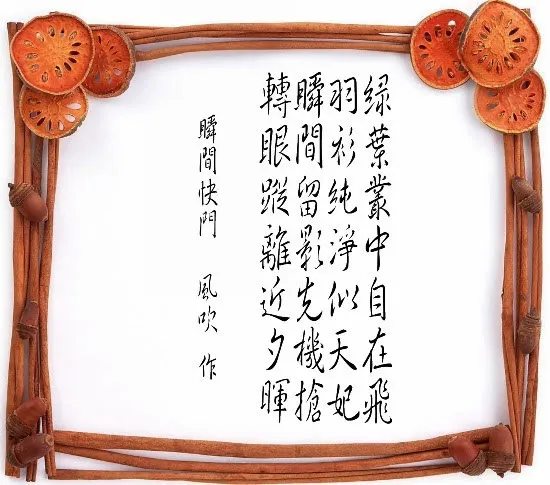 綠葉叢中自在飛
羽衫純淨似天妃
瞬間留影先機搶
轉眼蹤離近夕暉
瞬間快門 風吹 作